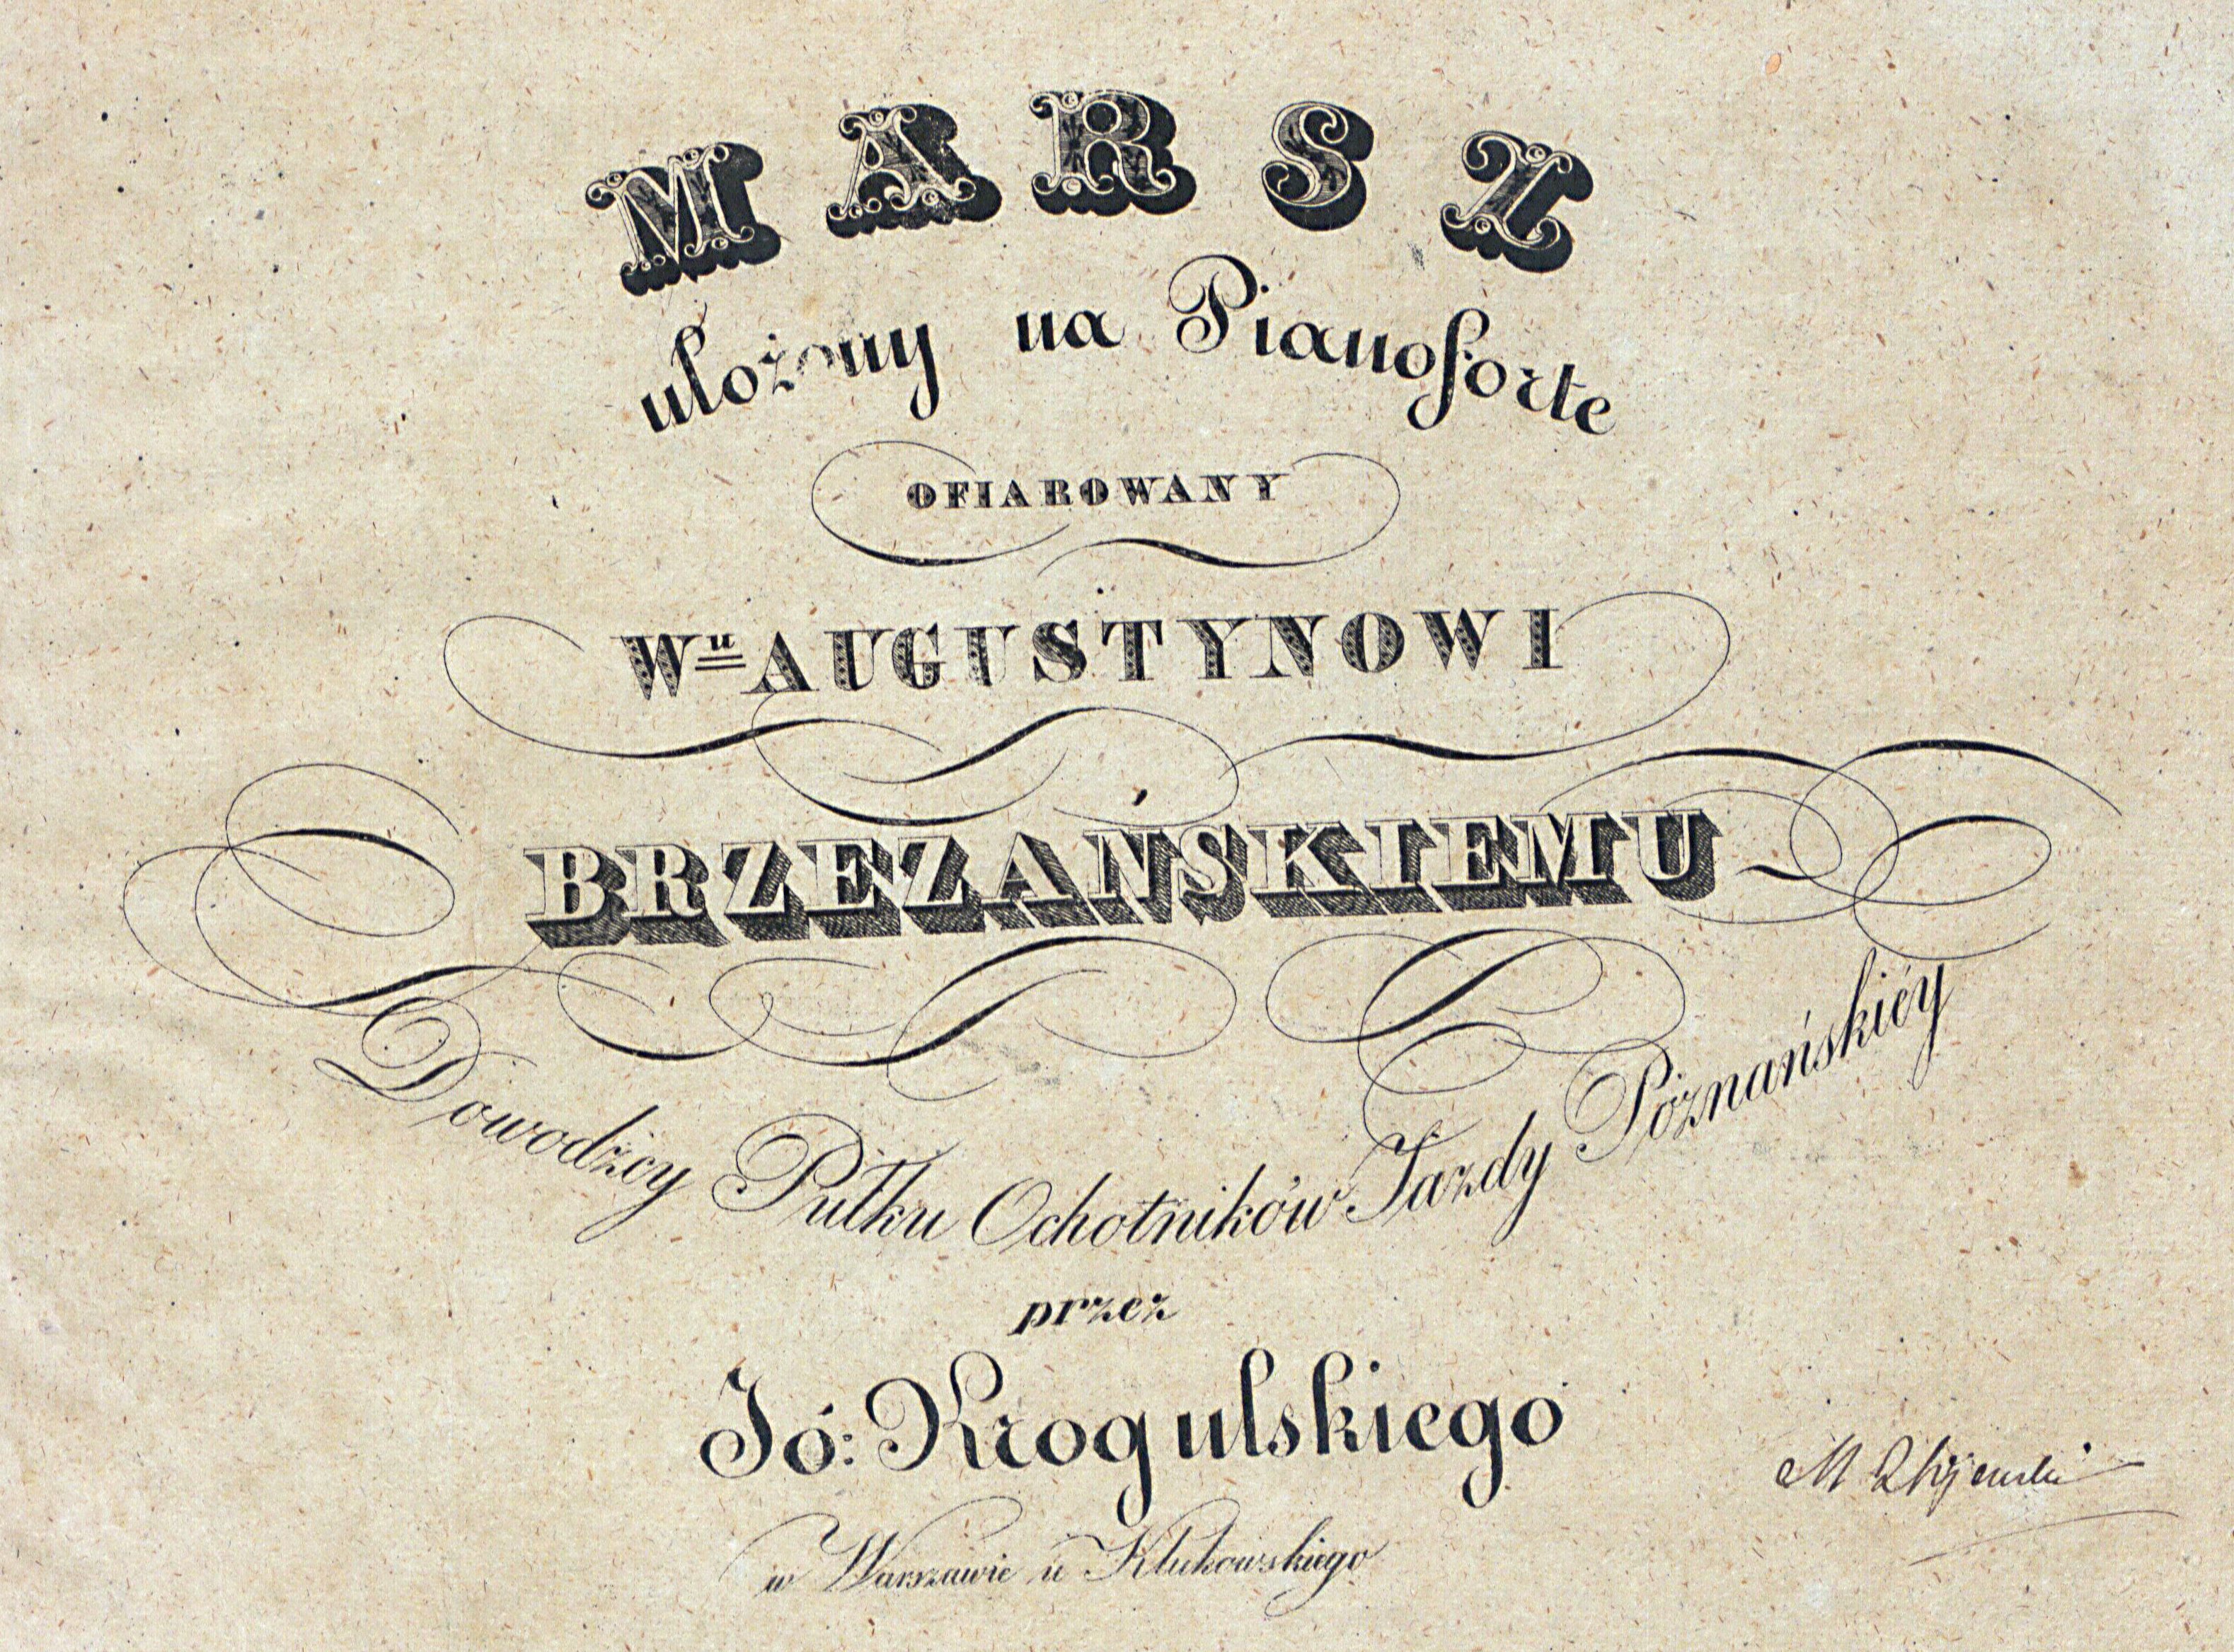 MARSZ
ułożony na Pianoforte
OFIAROWANY
Wu AUGUSTYNOWI
BRZEZAŃSKIEMU
Dowodzcy Pułku Ochotników Jazdy Poznańskiéy
przez
Jó: Krogulskiego
w Warszawie u Klukowskiego
M